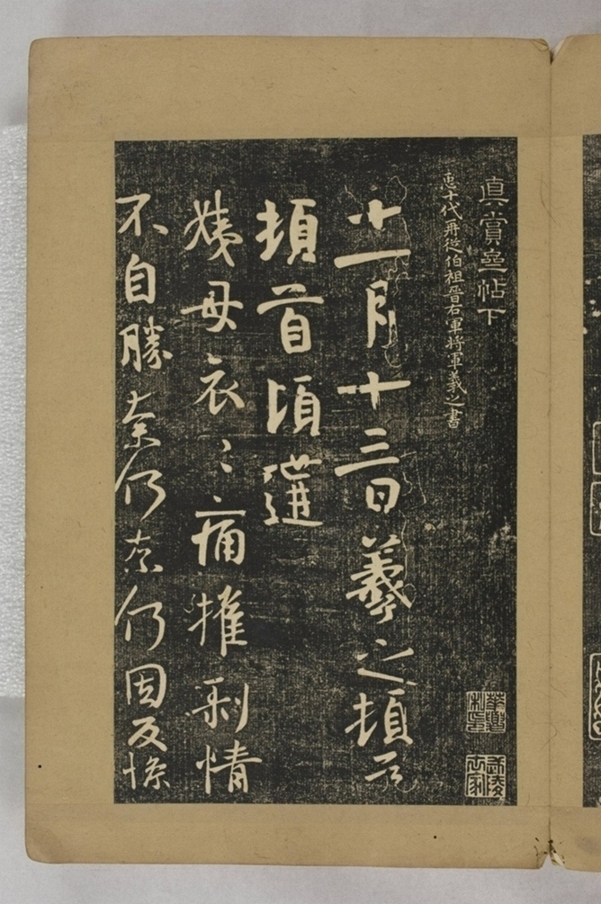 真賞齋帖下
𢘑十代再從伯祖晉右軍將軍羲之書
十一月十三日羲之頓首
頓首頃遘
姨母哀〻痛摧剝情
不自勝奈何奈何因反慘